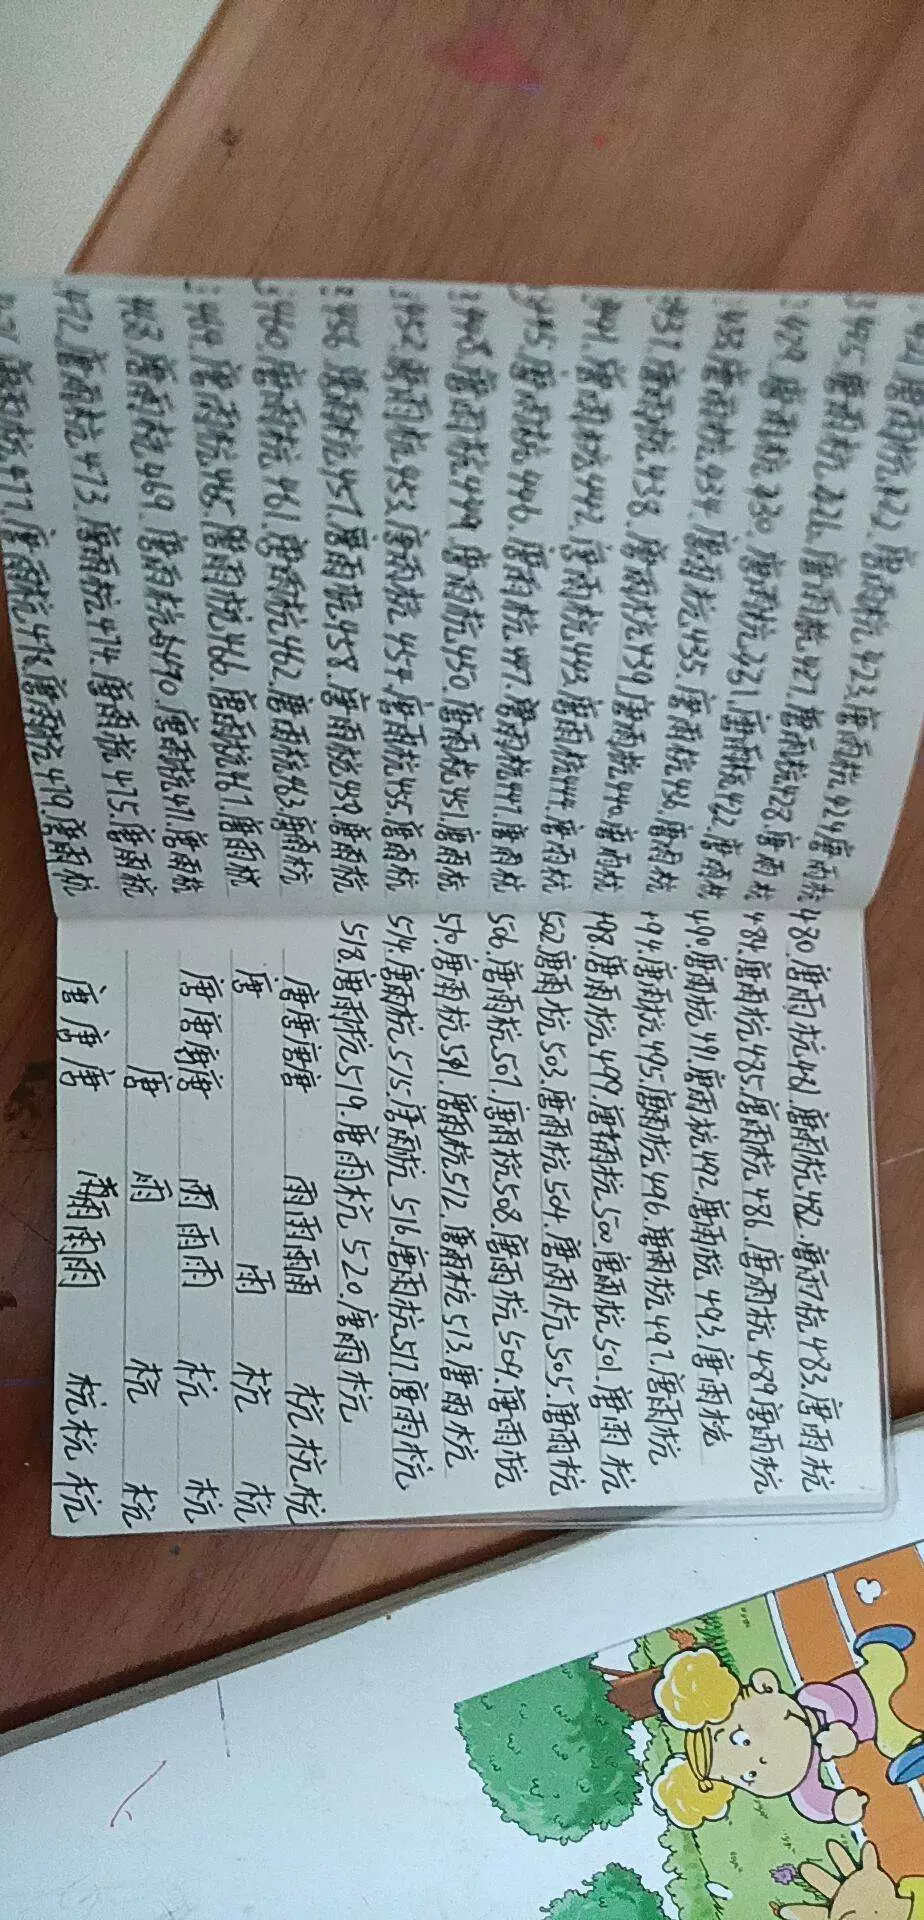 421.唐雨杭422.唐雨杭423.唐雨杭424.唐雨杭
425.唐雨杭426.唐雨杭427.唐雨杭428唐雨杭
429.唐雨杭430.唐雨杭431.唐雨杭432.唐雨杭
433.唐雨杭434.唐雨杭435.唐雨杭436.唐雨杭
437.唐雨杭438.唐雨杭439.唐雨杭440.唐雨杭
441.唐雨杭442.唐雨杭443.唐雨杭444.唐雨杭
445.唐雨杭446.唐雨杭447.唐雨杭447.唐雨杭
448.唐雨杭449.唐雨杭450.唐雨杭451.唐雨杭
452.唐雨杭453.唐雨杭454.唐雨杭455.唐雨杭
456.唐雨杭457.唐雨杭458.唐雨杭459.唐雨杭
460.唐雨杭461.唐雨杭462.唐雨杭463.唐雨杭
464.唐雨杭465.唐雨杭466.唐雨杭467.唐雨杭
468.唐雨杭469.唐雨杭470.唐雨杭471.唐雨杭
472.唐雨杭473.唐雨杭474.唐雨杭475.唐雨杭
唐雨杭477.唐雨杭478.唐雨杭479.唐雨杭
480.唐雨杭481.唐雨杭482.唐雨杭483.唐雨杭
484.唐雨杭485.唐雨杭486.唐雨杭489唐雨杭
490.唐雨杭491.唐雨杭492.唐雨杭493.唐雨杭
494.唐雨杭495.唐雨杭496.唐雨杭497.唐雨杭
498.唐雨杭499.唐雨杭500.唐雨杭501.唐雨杭
502唐雨杭503.唐雨杭504.唐雨杭505.唐雨杭
506.唐雨杭507.唐雨杭508.唐雨杭509.唐雨杭
510.唐雨杭511.唐雨杭512.唐雨杭513.唐雨杭
514.唐雨杭515.唐雨杭516.唐雨杭517.唐雨杭
518.唐雨杭519.唐雨杭520.唐雨杭
唐唐唐唐 雨雨雨雨 杭杭杭
唐 雨 杭 杭
唐唐唐唐 雨雨雨 杭 杭
唐 雨 杭 杭
唐唐唐 雨雨雨 杭杭杭